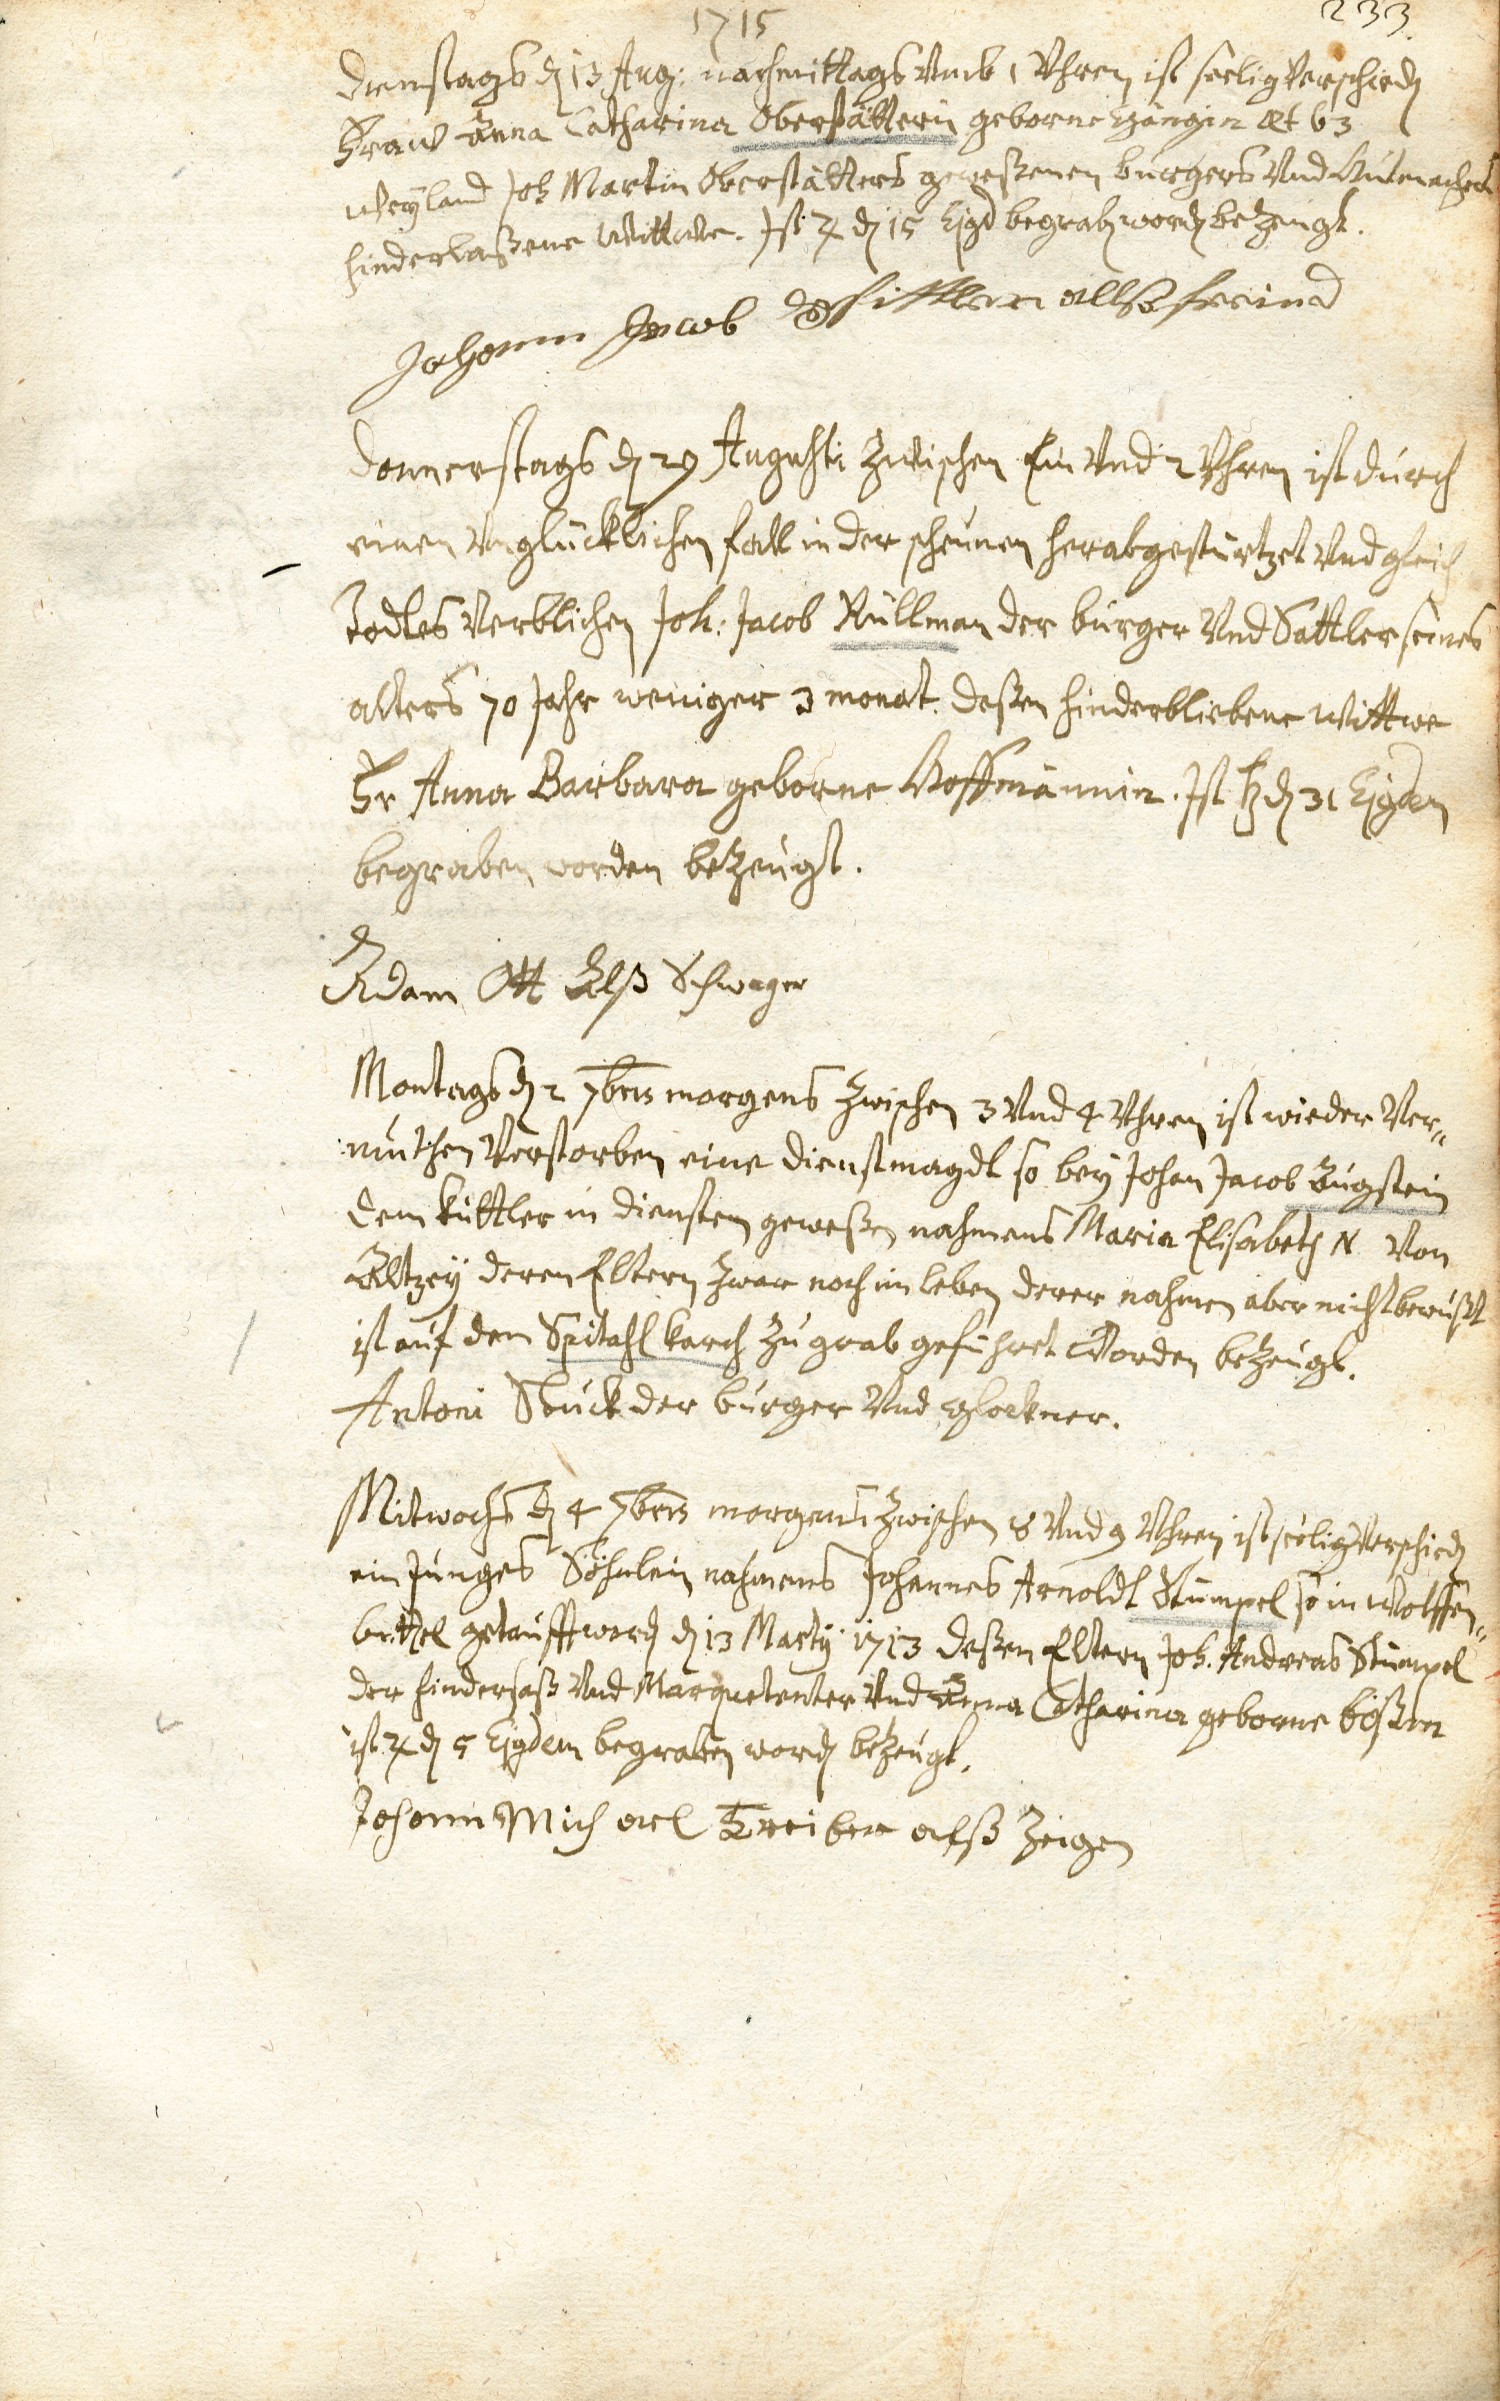 1715
233.
Dienstags dē 13 Aug: nachmittags Vmb 1 Vhren ist seelig Verschiedē
Fraw Anna Catharina Oberstätterin geborne æt 63
Weyland Joh Martin Oberstätters geweßenen burgers Vnd Hutmachers
hinderlaßene Wittwe. Ist ♃ dē 15 Ejgd begrabē wordē bezeugt.
Johann Jacob allß freind
Donnerstags dē 29 Augusti Zwischen Ein Vnd 2 Vhren ist durch
einen Vnglücklichen fall in der scheunen herabgestürtzet Vnd gleich
Todtes Verblichen Joh: Jacob Rüllman der burger Vnd Sattler seines
alters 70 Jahr weniger 3 monat. deßen hinderbliebene wittwe
Fr Anna Barbara geborne Hoffmännin. Ist ♄ dē 31 Ejgdem
begraben worden bezeugt.
Adam Ott Alß Schwager
Montags dē 2 7bris morgens Zwischen 3 Vnd 4 Vhren ist wieder Ver=
muthen Verstorben eine dienstmagdt so bey Johan Jacob Zugstein
dem küttler in diensten geweßen nahmens Maria Elisabeth N Von
Altzey deren Eltern Zwar noch im leben derer nahmen aber nicht bewußt
ist auf dem Spitahl karch Zu grab geführet Worden bezeugt.
Antoni Stuck der burger Vnd glockner.
Mitwochs dē 4 7bris morgens Zwischen 8 Vnd 9 Vhren ist seelig Verschiedē
ein Junges Söhnlein nahmens Johannes Arnoldt Stumpel so in Wolffen=
büttel getaufft wordē dē 13 Martij 1713 deßen Eltern Joh. Andreas Stumpel
der hindersaß Vnd Marquetenter Vnd Anna Catharina geborne bößin
ist ♃ dē 5 Ejgdem begraben wordē bezeugt.
Johann Michael Treiber alß Zeigen